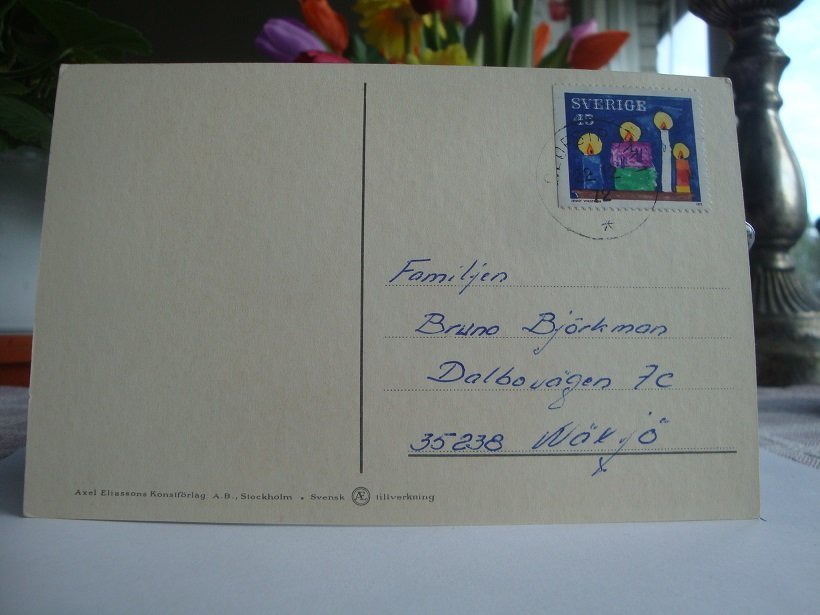 SVERIGE
45
Familjen
Bruno Björkman
Dalbovägen 7c
35238 Wäxjö
Axel Eliassons Konstförlag A.B., Stockholm • Svensk Æ tillverkning